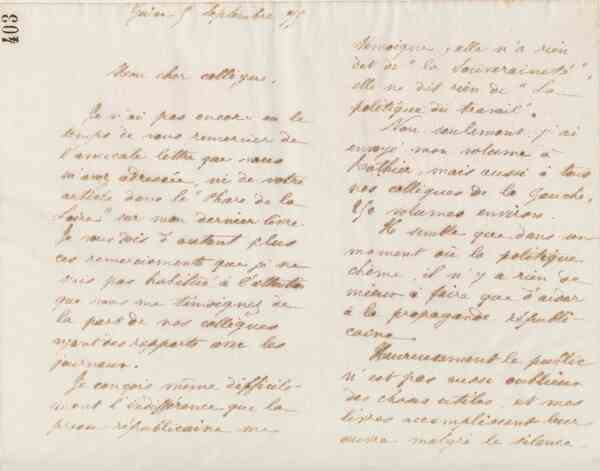 403
5 Septembre 75
Mon cher collègue,
Je n'ai pas encore eu le
temps de vous remercier de
l'amicale lettre que vous
m'avez adressée, ni de votre
article dans le "Phare de la
Loire" sur mon dernier livre.
Je vous dois d'autant plus
ces remerciements que je ne
suis pas habitué à l'attention
que vous me témoignez de
la part de nos collègues
ayant des rapports avec les
journaux.
Je conçois même difficile-
ment l'indifférence que la
presse républicaine me
témoigne, elle n'a rien
dit de "la Souveraineté",
elle ne dit rien de "La
politique du travail".
Non seulement j'ai
envoyé mon volume à
mais aussi à tous
nos collègues de la Gauche,
250 volumes environ.
Il semble que dans un
moment où la politique
chôme, il n'y a rien de
mieux à faire que d'aider
à la propagande républi-
caine.
Heureusement le public
n'est pas aussi oublieux
des choses utiles, et mes
livres accomplissent leur
œuvre malgré le silence